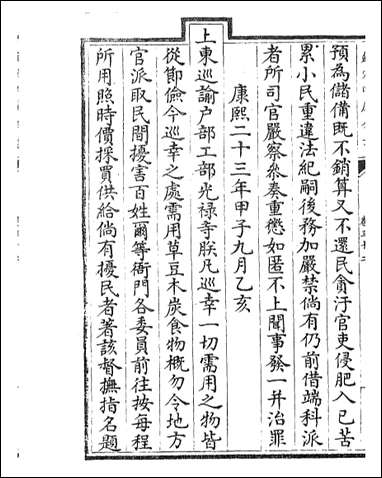 預為儲備既不銷算又不還民貪汙官吏侵肥入已苦
累小民重違法紀嗣後務加嚴禁倘有仍前借端科派
者所司官嚴察叅奏重懲如匿不上聞事發一并治罪
康熙二十三年甲子九月乙亥
上東巡諭户部工部光祿寺朕凡巡幸一切需用之物皆
從節儉今巡幸之處需用草豆木炭食物概勿令地方
官派取民間擾害百姓爾等衙門各委員前往按每程
所用照時價採買供給倘有擾民者著該督撫指名題